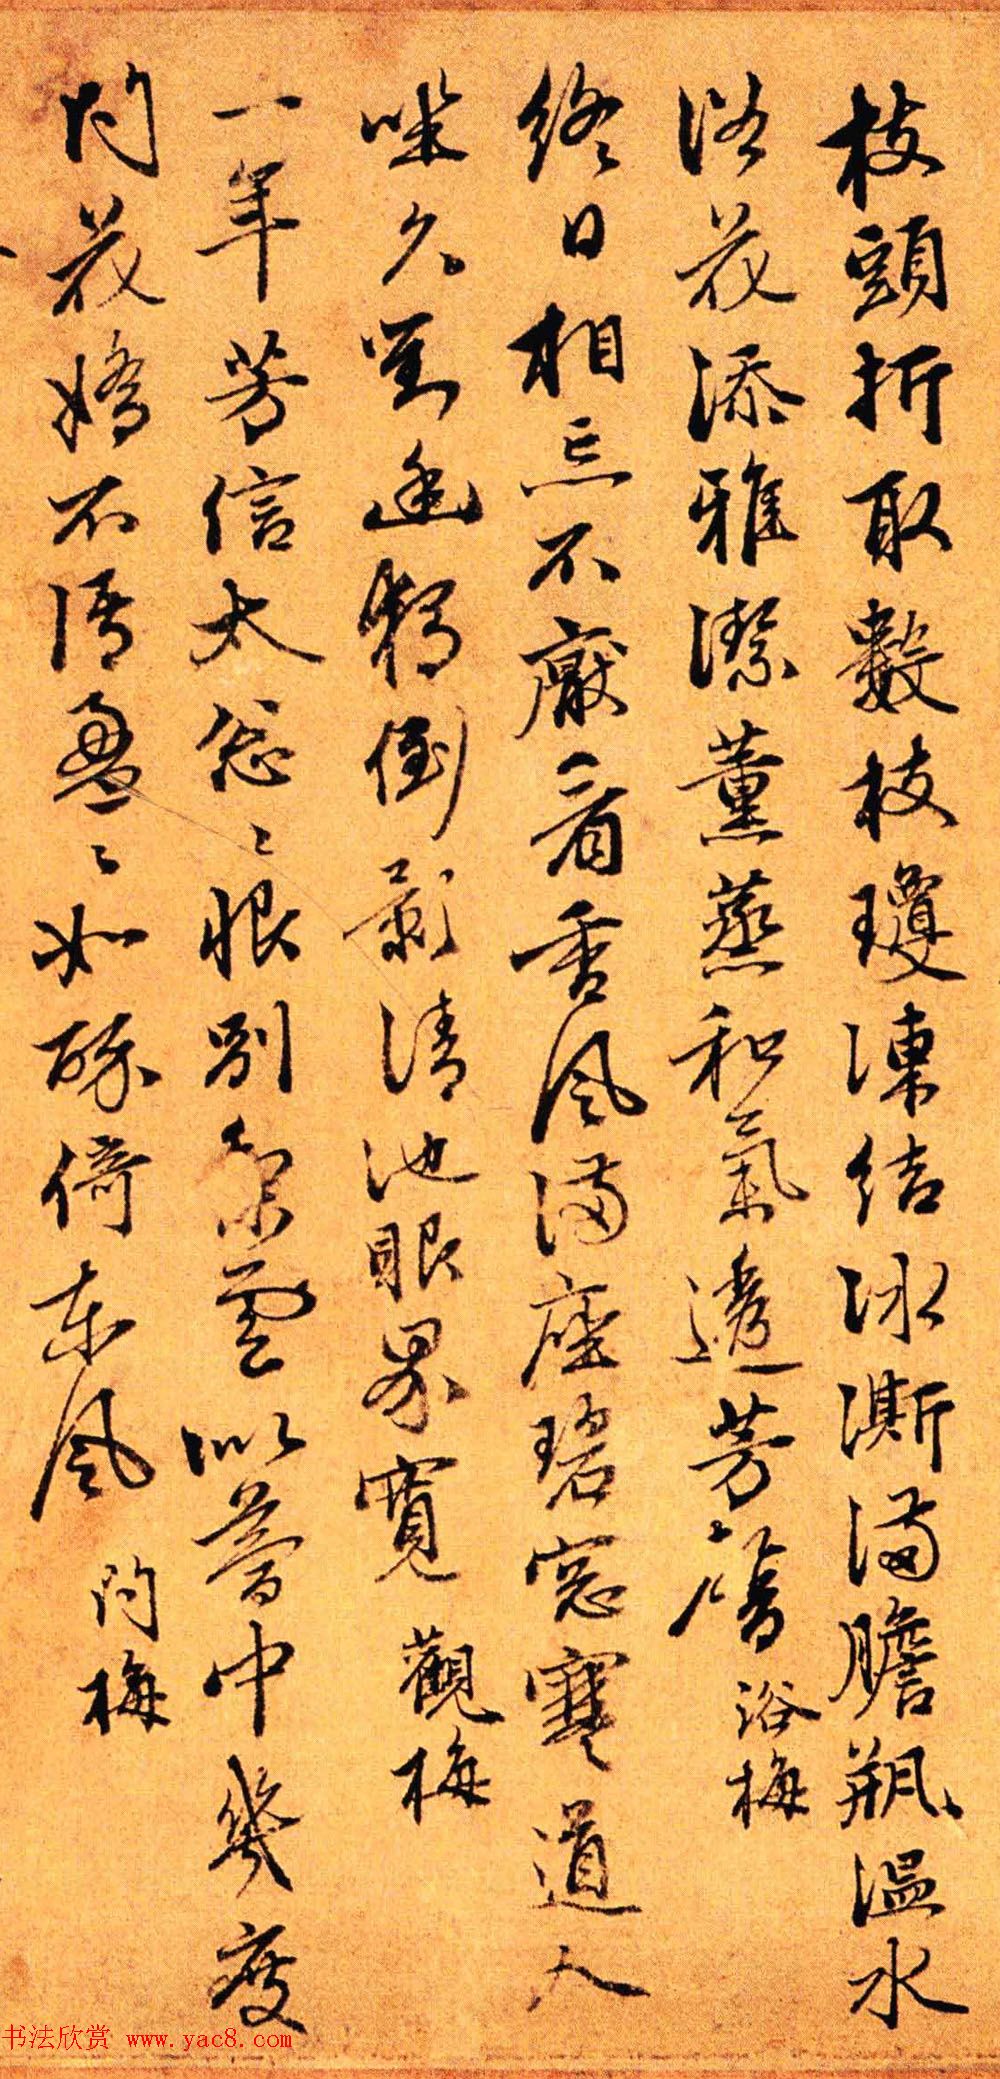 枝頭折取數枝瓊凍結冰澌滿膽瓶溫水
浴花添雅潔薰蒸和氣透芳馨 浴梅
終日相忘不厭看香風滿座碧窓寒道人
坐久對幽鶴倒影清池眼界寬 觀梅
一年芳信太怱〻恨別梨雲似夢中幾度
問花嬌不語盈〻如醉倚東風 問梅
书法欣赏 www.yac8.com